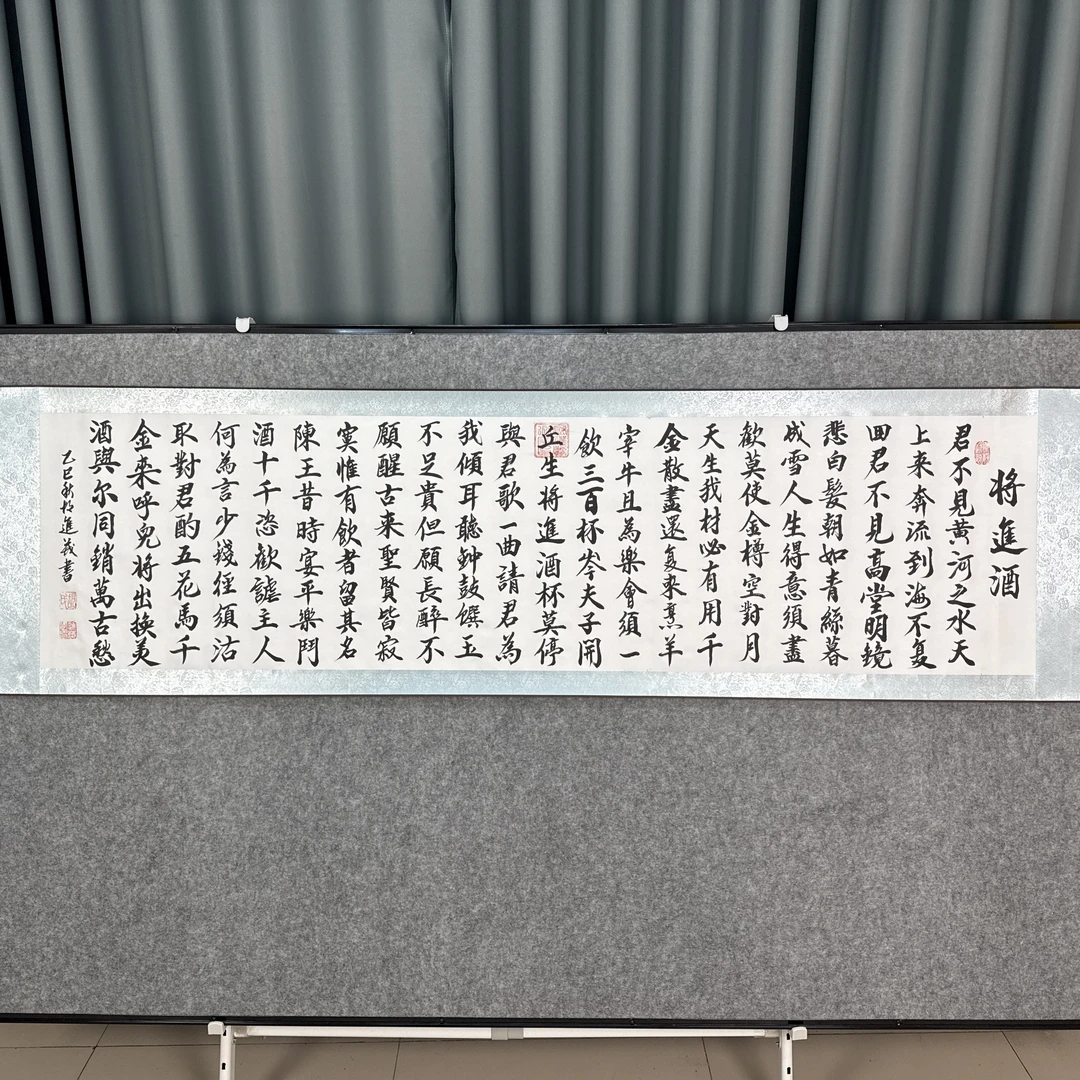 将進酒
君不見黄河之水天
上来奔流到海不复
回君不見高堂明鏡
悲白髮朝如青絲暮
成雪人生得意須盡
歡莫使金樽空對月
天生我材必有用千
金散盡還复来烹羊
宰牛且為樂會須一
飲三百杯岑夫子開
丘生将進酒杯莫停
與君歌一曲請君為
我傾耳聽鈡鼓饌玉
不足貴但願長醉不
願醒古来聖賢皆寂
寞惟有飲者留其名
陳王昔時宴平樂鬥
酒十千恣歡謔主人
何為言少錢徑須沽
取對君酌五花馬千
金裘呼兒将出换美
酒與尔同銷萬古愁
乙巳秋進義書